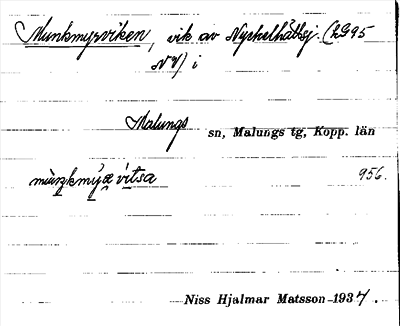 Munkmyrviken, vik av Nyckelhålssj. (2G95
NV) i
Malungs sn, Malungs tg, Kopp. län
956.
Niss Hjalmar Matsson 1937.